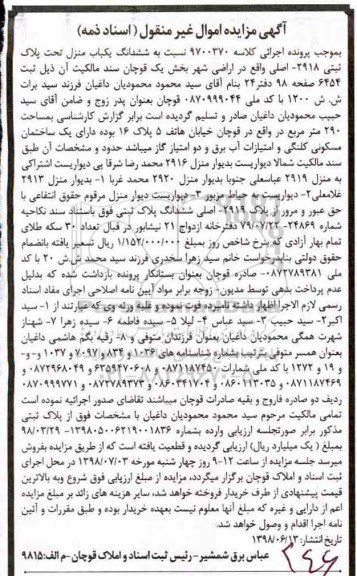 آگهی مزایده اموال غیر منقول ( اسناد ذمه)
بموجب پرونده اجرائی کلاسه ۹۷۰۰۳۷۰ نسبت به ششدانگ یکباب منزل تحت پلاک
ثبتی ۲۹۱۸- اصلی واقع در اراضی شهر بخش یک قوچان سند مالکیت آن ذیل ثبت
۶۴۵۴ صفحه ۹۸ دفتر ۲۴ بنام آقای سید محمود محمودیان داغیان فرزند سید برات
ش. ش ۱۲۰۰ با کد ملی ۰۸۷۰۹۹۹۰۴۴ قوچان بعنوان پدر زوج و ضامن آقای سید
حبیب محمودیان داغیان صادر و تسلیم گردیده است برابر گزارش کارشناسی بمساحت
۲۹۰ متر مربع در واقع در قوچان خیابان هاتف ۵ پلاک ۱۶ بوده دارای یک ساختمان
مسکونی کلنگی و امتیازات آب برق و دو امتیاز گاز میباشد حدود و مشخصات آن طبق
سند مالکیت شمالا دیواریست بدیوار منزل ۲۹۱۶ محمد رضا شرقا پی دیواریست اشتراکی
به منزل ۲۹۱۹ عباسعلی جنوبا بدیوار منزل ۲۹۲۰ محمد غربا ۱- بدیوار منزل ۲۹۱۳
غلامعلی ۲- دیواریست به حیاط مزبور ۳- دیواریست دیوار منزل مرقوم حقوق انتفاعی با
حق عبور و مرور از پلاک ۲۹۱۹- اصلی ششدانگ پلاک ثبتی فوق باستناد سند نکاحیه
شماره ۲۴۸۶۹- ۷۹/۰۷/۲۲ دفترخانه ازدواج ۲۱ نیشابور در قبال تعداد ۳۰۰ سکه طلای
تمام بهار آزادی که بنرخ شاخص روز بمبلغ ۱/۱۵۲/۰۰۰/۰۰۰ ریال تسعیر یافته بانضمام
حقوق دولتی بنابدرخواست خانم سید زهرا سخدری فرزند سید محمد ش.ش ۲۰ با کد
ملی ۰۸۷۲۷۸۹۳۸۱ صادره قوچان بعنوان بستانکار پرونده بازداشت شده که بدلیل
عدم پرداخت بدهی توسط مدیون - زوجه برابر مواد آیین نامه اصلاحی اجرای مفاد اسناد
رسمی لازم الاجرا اظهار داشته نامبرده فوت نموده و علیه ورثه وی که عبارتند از ۱- سید
اکبر ۲- سید حبیب ۳- سید عباس ۴- لیلا ۵- سیده فاطمه ۶- سیده زهرا ۷- شهناز
شهرت همگی محمودیان داغیان بعنوان فرزندان متوفی و ۸- رقیه بگم هاشمی داغیان
بعنوان همسر متوفی بترتیب بشماره شناسنامه های
ردیف دو صادره فاروج و بقیه صادرات قوچان میباشند تقاضای صدور اجرائیه نموده است
تمامی مالکیت مرحوم سید محمود محمودیان داغیان با مشخصات فوق از پلاک ثبتی
مذکور برابر صورتجلسه ارزیابی وارده بشماره ۱۳۹۸۰۵۰۰۶۲۱۹۰۰۱۸۳۶- ۹۸/۰۳/۲۹
بمبلغ ( یک میلیارد ریال) ارزیابی گردیده و قطعیت یافته است که از طریق مزایده بفروش
میرسد جلسه مزایده از ساعت ۱۲-۹ روز چهار شنبه مورخه ۱۳۹۸/۰۷/۰۳ در محل اجرای
ثبت اسناد و املاک قوچان برگزار میگردد، مزایده از مبلغ ارزیابی فوق شروع وبه بالاترین
قیمت پیشنهادی از طرف خریدار فروخته خواهد شد، سایر هزینه های زائد بر مبلغ مزایده
اعم از دارایی و غیره که مبلغ آنها معلوم نیست بعهده خریدار بوده و طبق مقررات و آئین
نامه اجرا اقدام و وصول خواهد شد.
تاریخ انتشار: ۱۳۹۸/۰۶/۱۳
عباس برق شمشیر - رئیس ثبت اسناد و املاک قوچان -م الف: ۹۸۱۵